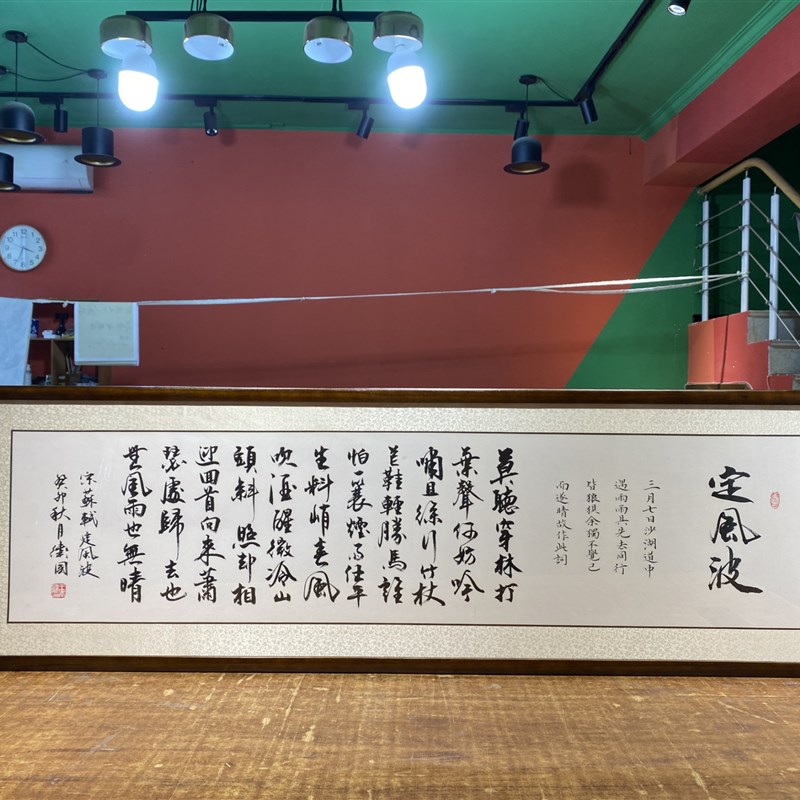 定風波
三月七日沙湖道中
遇雨雨具先去同行
皆狼狽余獨不覺已
而遂晴故作此詞
莫聽穿林打
葉聲何妨吟
嘯且徐行竹杖
芒鞋輕勝馬誰
怕一蓑煙雨任平
生料峭春風
吹酒醒微冷山
頭斜照却相
迎回首向來蕭
瑟處歸去也
無風雨也無晴
宋蘇軾定風波
癸卯秋月國